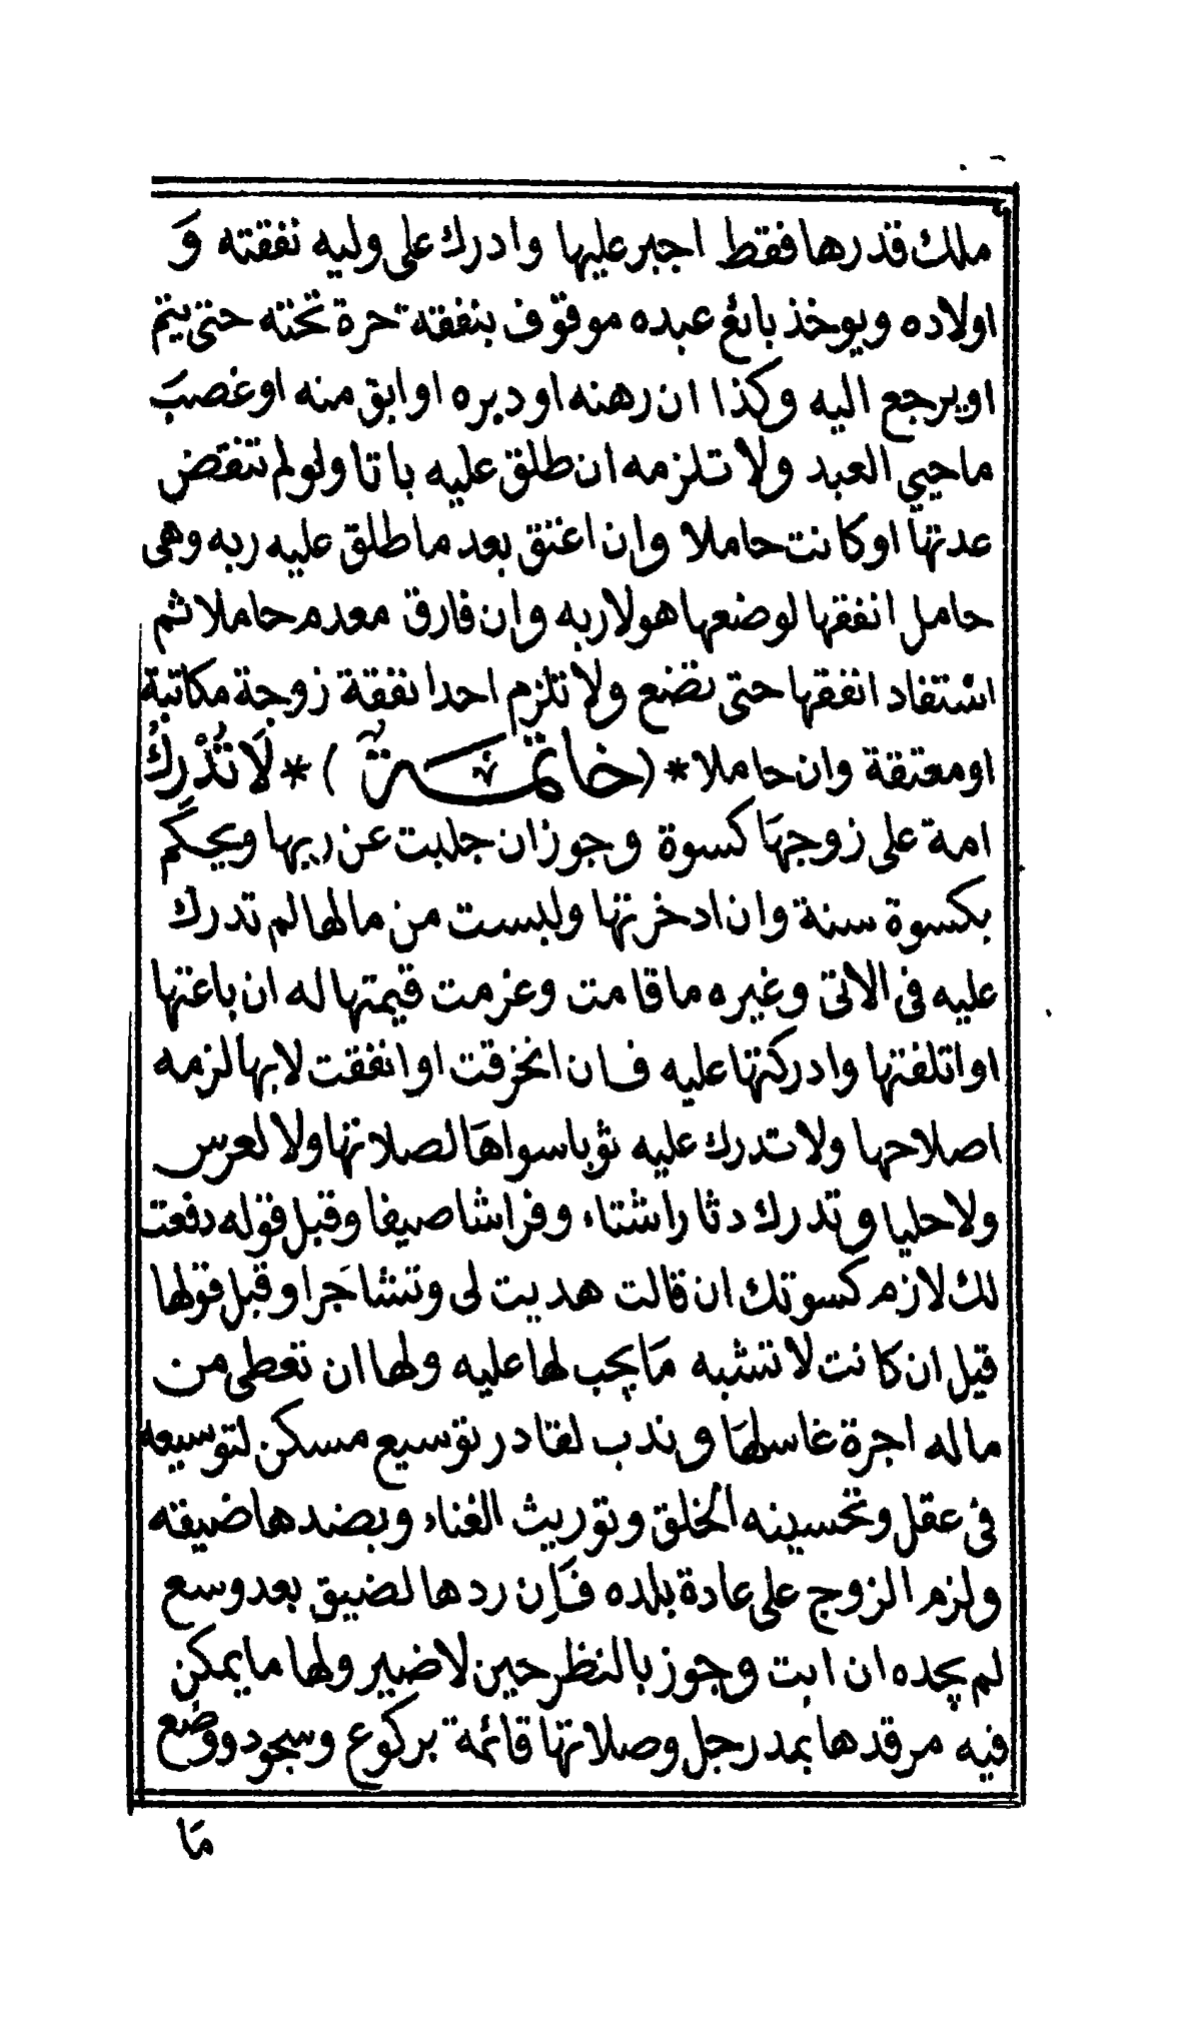 ملك قدرها فقط اجبر عليها وادرك على وليه نفقته وَ
اولاده ويوخذ بائع عبده موقوف بنفقة حرة تحته حتى يتم
او يرجع اليه وكذا ان رهنه او دبره او ابق منه او غصبَ
ما حيي العبد ولا تلزمه ان طلق عليه باتا ولو لم تنقض
عدتها او كانت حاملا وان اعتق بعد ما طلق عليه ربه وهى
حامل انفقها لوضعها هو لا ربه وان فارق معدم حاملا ثم
استفاد انفقها حتى تضع ولا تلزم احدا نفقة زوجة مكاتبة
او معتقة وان حاملا * (خاتمة) * لَا تُدْرِكُ
امة على زوجهَا كسوة وجوز ان جلبت عن ربها ويحكم
بكسوة سنة وان ادخرتها ولبست من مالها لم تدرك
عليه فى الاتى وغيره ما قامت وغرمت قيمتها له ان باعتها
او اتلفتها وادركتها عليه فان انخرقت او انفقت لا بها لزمه
اصلاحها ولا تدرك عليه ثوبا سواهَا لصلاتها ولا لعرس
ولا حليا وتدرك دثارا شتاء وفراشا صيفا وقبل قوله دفعت
لك لازم كسوتك ان قالت هديت لى وتشاجَرا وقبل قولها
قيل ان كانت لا تشبه مَا يجب لها عليه ولها ان تعطى من
ماله اجرة غاسلهَا وندب لقادر توسيع مسكن لتوسيعه
فى عقل وتحسينه الخلق وتوريث الغناء وبضدها ضيقه
ولزم الزوج على عادة بلده فَاِن ردها لضيق بعد وسع
لم يجده ان ابت وجوز بالنظر حين لا ضير ولها ما يمكن
فيه مرقدها بمد رجل وصلاتها قائمة بركوع وسجود ووضع
مَا